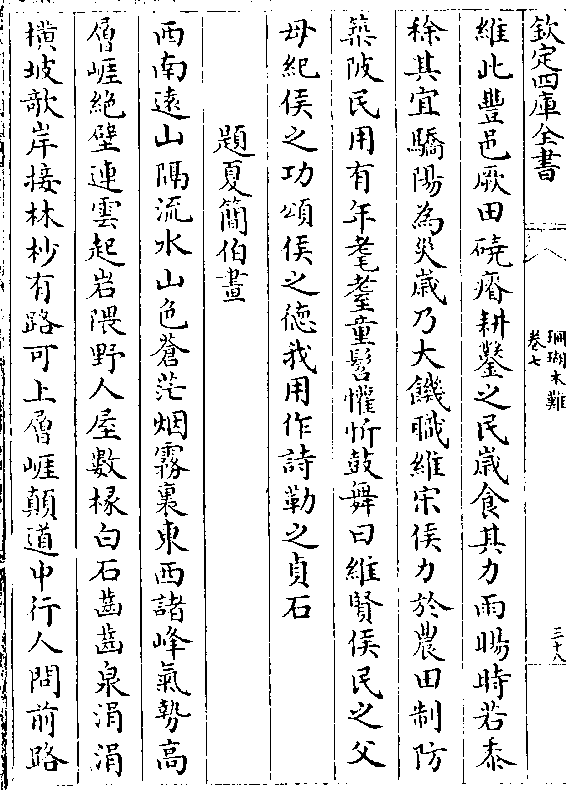 欽定四庫全書
珊瑚木難
卷七
三十八
維此豐邑厥田磽瘠耕鑿之民歲食其力雨暘時若黍
稌其宜驕陽為災歲乃大饑職維宋侯力於農田制防
築陂民用有年耄耋童髫懽忻鼓舞曰維賢侯民之父
母紀侯之功頌侯之德我用作詩勒之貞石
題夏簡伯畫
西南遠山隔流水山色蒼茫烟霧裏東西諸峰氣勢高
層崕絶壁連雲起岩隈野人屋數椽白石齒齒泉涓涓
横坡欹岸接林杪有路可上層崕顛道中行人問前路